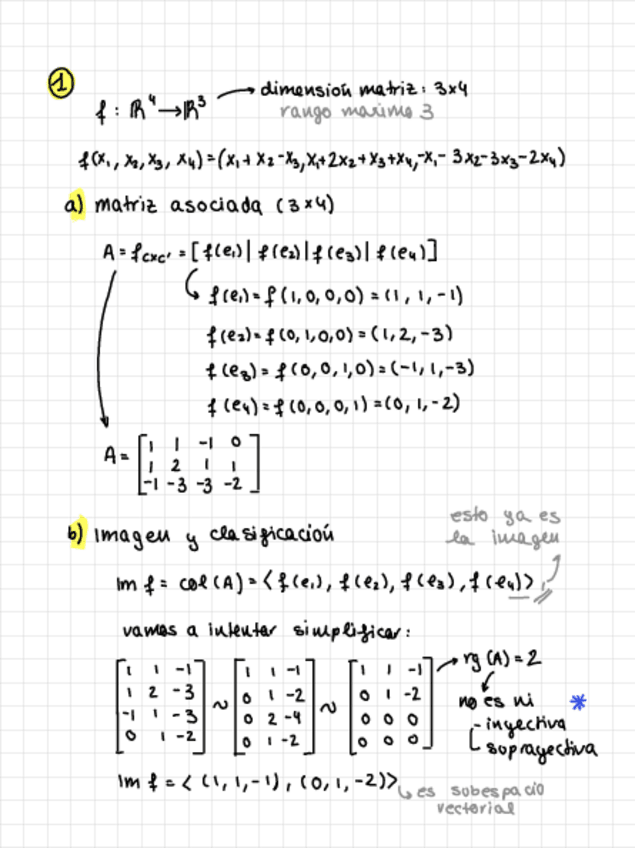 1
f : ℝ⁴ → ℝ³ → dimensión matriz: 3x4
rango maximo 3
f(x₁, x₂, x₃, x₄) = (x₁ + x₂ - x₃, x₁ + 2x₂ + x₃ + x₄, -x₁ - 3x₂ - 3x₃ - 2x₄)
a) matriz asociada (3x4)
A = f_{CxC'} = [f(e₁) | f(e₂) | f(e₃) | f(e₄)]
f(e₁) = f(1,0,0,0) = (1, 1, -1)
f(e₂) = f(0,1,0,0) = (1, 2, -3)
f(e₃) = f(0,0,1,0) = (-1, 1, -3)
f(e₄) = f(0,0,0,1) = (0, 1, -2)
A =
1 1 -1 0
1 2 1 1
-1 -3 -3 -2
b) Imagen y clasificación
esto ya es
la imagen
Im f = col(A) = <f(e₁), f(e₂), f(e₃), f(e₄)>
vamos a intentar simplificar:
[1 1 -1] ~ [1 1 -1] ~ [1 1 -1] → rg(A) = 2
[1 2 -3] [0 1 -2] [0 1 -2]
[-1 1 -3] [0 2 -4] [0 0 0]
[0 1 -2] [0 1 -2] [0 0 0]
no es ni *
- inyectiva
sobrayectiva
Im f = < (1, 1, -1), (0, 1, -2)>
es subespacio
vectorial